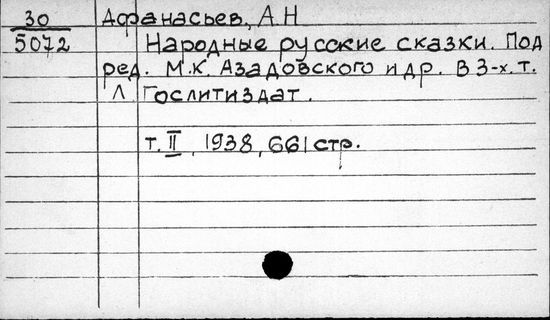 30 Афанасьев, А.Н
5072 Народные русские сказки. Под
ред. М.К. Азадовского и др. В 3-х. т.
Л. Гослитиздат.
т. II, 1938, 661 стр.